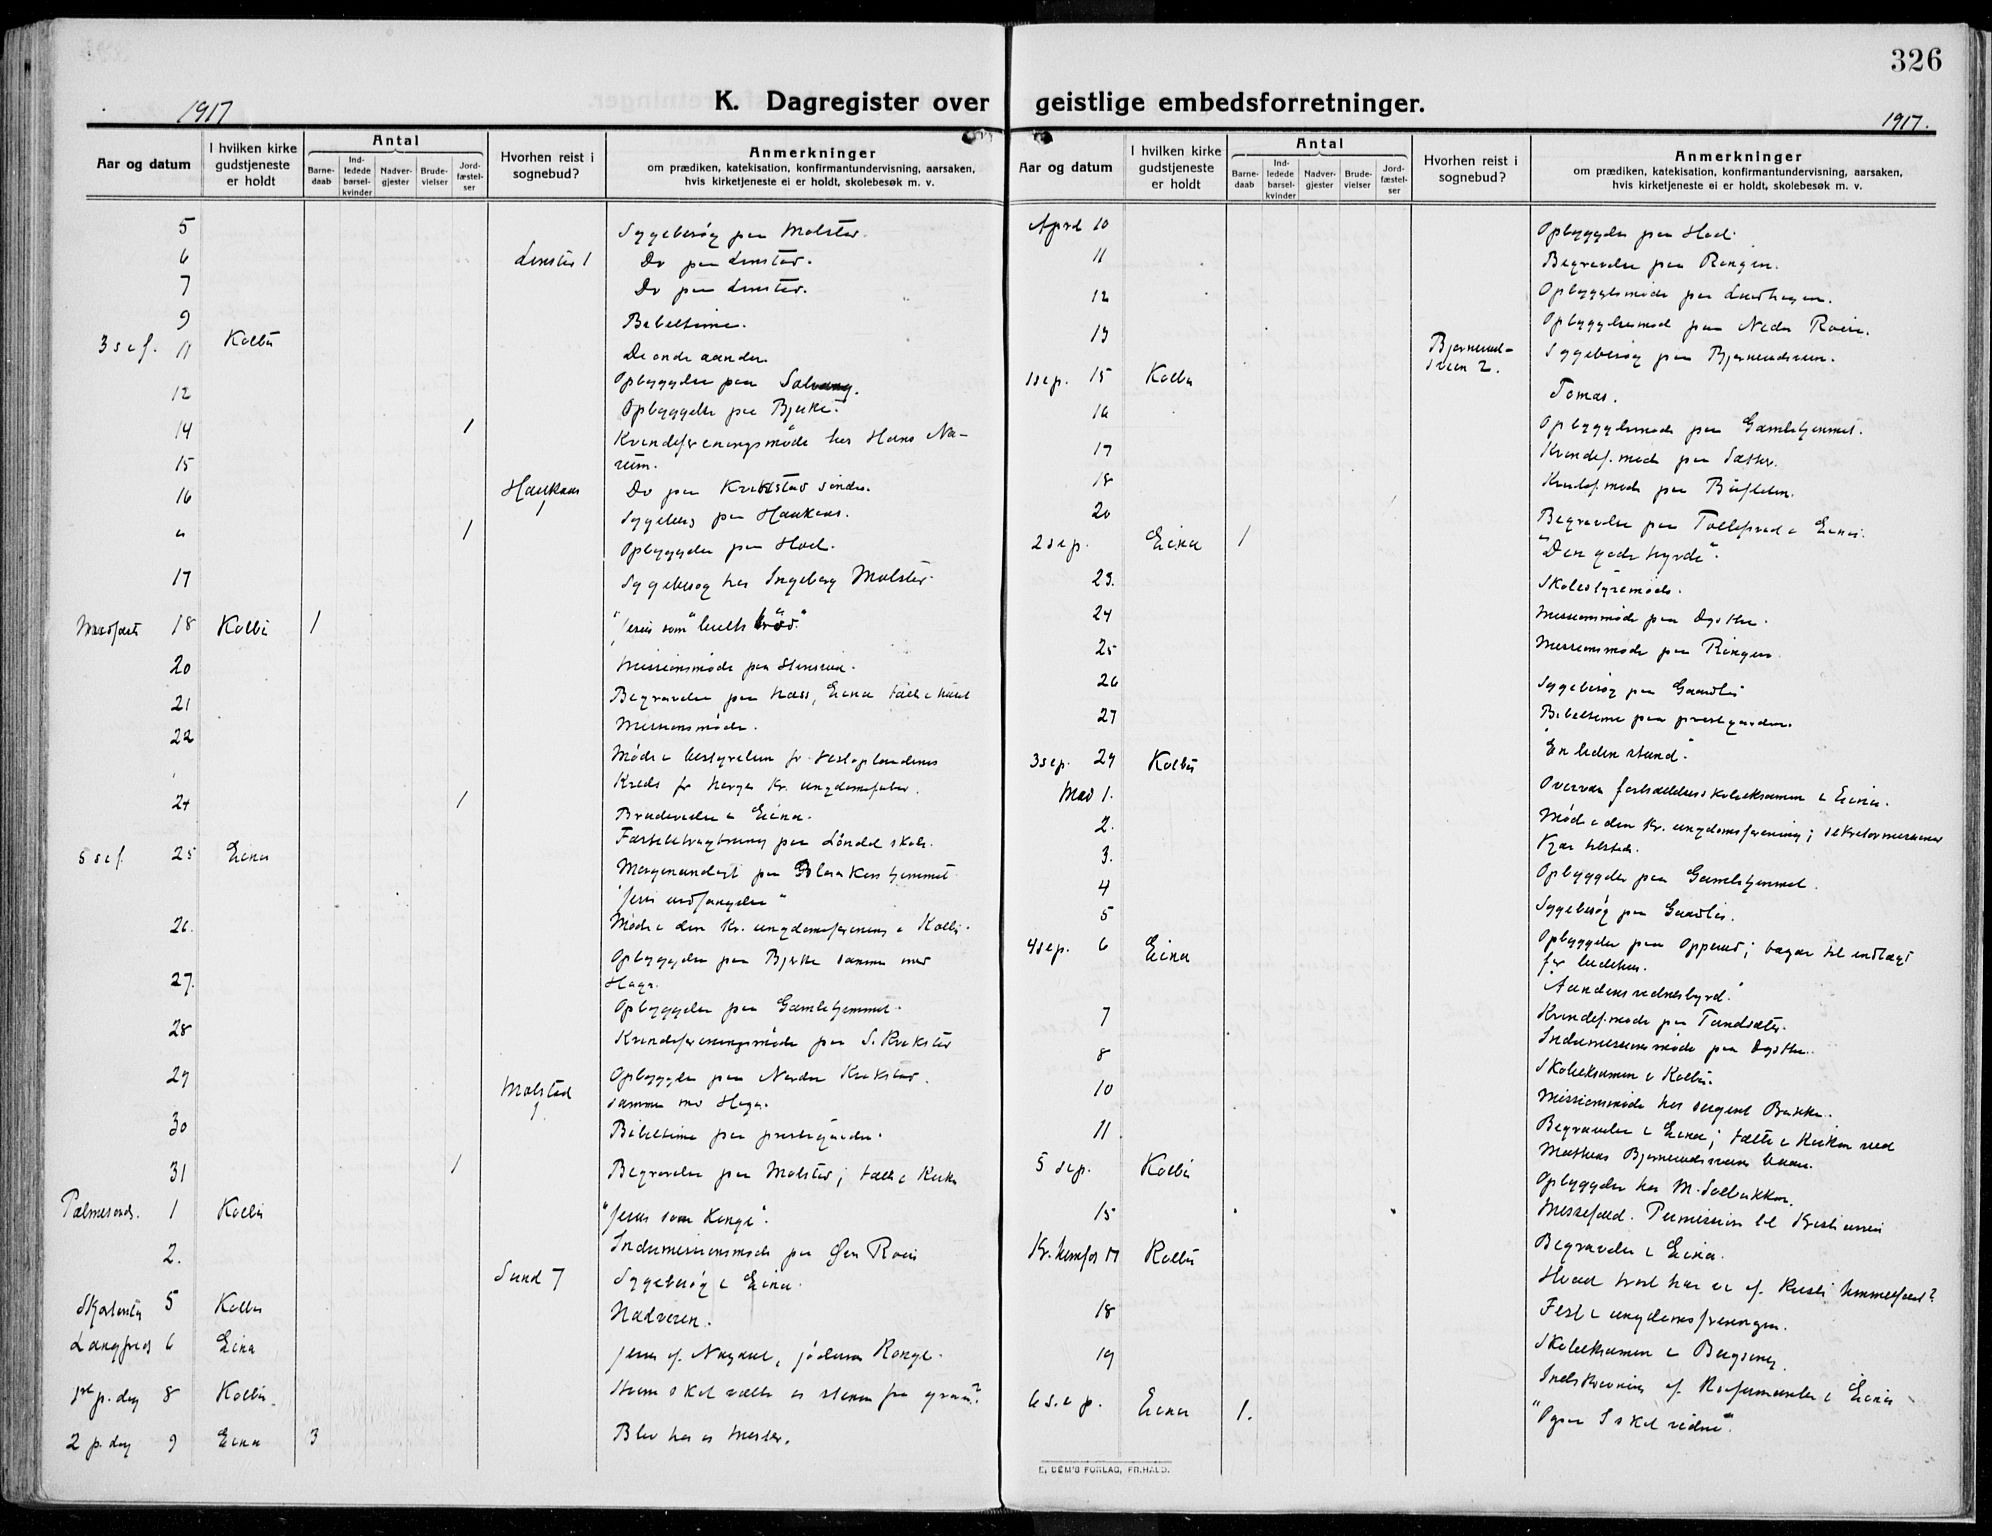 326
1917
K. Dagregister over geistlige embedsforretninger.
1917.
Aar og datum
I hvilken kirke gudstjeneste er holdt
Antal
Barne-daab
Ind-ledede barsel-kvinder
Nadver-gjester
Brude-vielser
Jord-fæstel-ser
Hvorhen reist i sognebud?
Anmerkninger
om prædiken, katekisation, konfirmantundervisning, aarsaken,
hvis kirketjeneste ei er holdt, skolebesøk m. v.
5 Sygebesøg paa Molstad.
6 1 Do paa
7 Do paa
9 Bibeltime.
3 s e f. 11 Kolbu De onde aander.
12 Opbyggelse paa
Opbyggelse paa Bjerke.
14 1 Kvindeforeningsmøde hos Hans Na-
15 rum.
16 Haukaas 1 Do paa søndre.
Sygebesøg paa Haukaas.
" 1 Opbyggelse paa Hoel.
17 Sygebesøg hos Ingeborg Molstad.
18 Kolbu 1 "Jesus som livets brød."
20 Missionsmøde paa
21 Begravelse paa Næss, Eina
22 Missionsmøde.
Møde i bestyrelsen for Vestoplandenes
Kreds for Norges Kr. ungdomsforbund.
24 1 Bradevelse i Eina.
Fastebetragtning paa skole.
5 s e f. 25 Eina Morgenandagt paa hjemmet
"Jesu undfangelse"
26. Møde i den Kr. ungdomsforening i Kolbu.
Opbyggelse paa Bjerke samme med
27. Haga.
Opbyggelse paa Gamlehjemmet.
28 Kvindeforeningsmøde paa S. Krekstad
29 Molstad 1 Opbyggelse paa Nordre Krekstad
samme med Haga.
30 Bibeltime paa prestegaarden.
31 1 Begravelse paa Molstad; tale i Kirken
Palmesønd. 1 Kolbu "Jesus som Konge".
2. Indremissionsmøde paa Øvre Roen
Sund 7 Sygebesøg i Eina.
Skjærtorsd 5 Kolbu Nadveren.
Langfred 6 Eina Jesus af Nazaret, jødernes Konge.
1ste p. dag 8 Kolbu. Hvem skal vælte os stenen fra graven?
2 p. dag 9 Eina 3 Bliv hos os Mester.
Aar og datum
I hvilken kirke gudstjeneste er holdt
Antal
Barne-daab
Ind-ledede barsel-kvinder
Nadver-gjester
Brude-vielser
Jord-fæstel-ser
Hvorhen reist i sognebud?
Anmerkninger
om prædiken, katekisation, konfirmantundervisning, aarsaken,
hvis kirketjeneste ei er holdt, skolebesøk m. v.
April 10 Opbyggelse paa Hoel
11 Begravelse paa Ringen.
12 Opbyggelsesmøde paa
13 Opbyggelsesmøde paa Nedre Roen.
Bjørnerud-sveen 2. Sygebesøg paa Bjørnerudsveen.
1 s e p. 15 Kolbu Tomas.
16 Opbyggelsesmøde paa Gamlehjemmet.
17 Kvindef. møde paa Sætter.
18 Kvindef. møde paa
20 Begravelse paa Tollefsrud i Eina.
2 s e p. Eina 1 "Den gode hyrde".
23. Skolestyremøde.
24 Missionsmøde paa Dysthe.
25 Missionsmøde paa Ringen
26 Sygebesøg paa Gaardlii
27 Bibeltime paa prestegaarden.
3 s e p. 29 Kolbu "En liden stund".
Mai 1. Overvær fortsættelsesskoleeksamen i Eina.
2. Møde i den Kr. ungdomsforening; sekretær
3. Kjær tilstede.
4 Opbyggelse paa Gamlehjemmet.
5 Sygebesøg paa Gaardlii.
4 s e p. 6 Eina Opbyggelse paa Opperud; bazar til indtægt
for bedehus.
"Aandens vidnesbyrd."
7 Kvindef. møde paa
8 Indremissionsmøde paa Dysthe.
Skoleeksamen i Kolbu.
10 Missionsmøde hos sergent Bakke.
11 Begravelse i Eina; talte i Kirken ved
Mathias Bjørnerudsveens baare.
5 s e p. Kolbu Opbyggelse hos M. Solbakken.
15 Messefald. Permission til Kristiania
Kr. himfar 17 Kolbu Begravelse i Eina.
Hvad trøst har vi af Kristi himmelfart?
18 Fest i ungdomsforeningen.
19 Skoleeksamen i
6 s. e p. Eina 1. Indskrivning af Konfirmanter i Eina
"Ogsaa I skal vidne".
E. SEM'S FORLAG, FR.HALD.